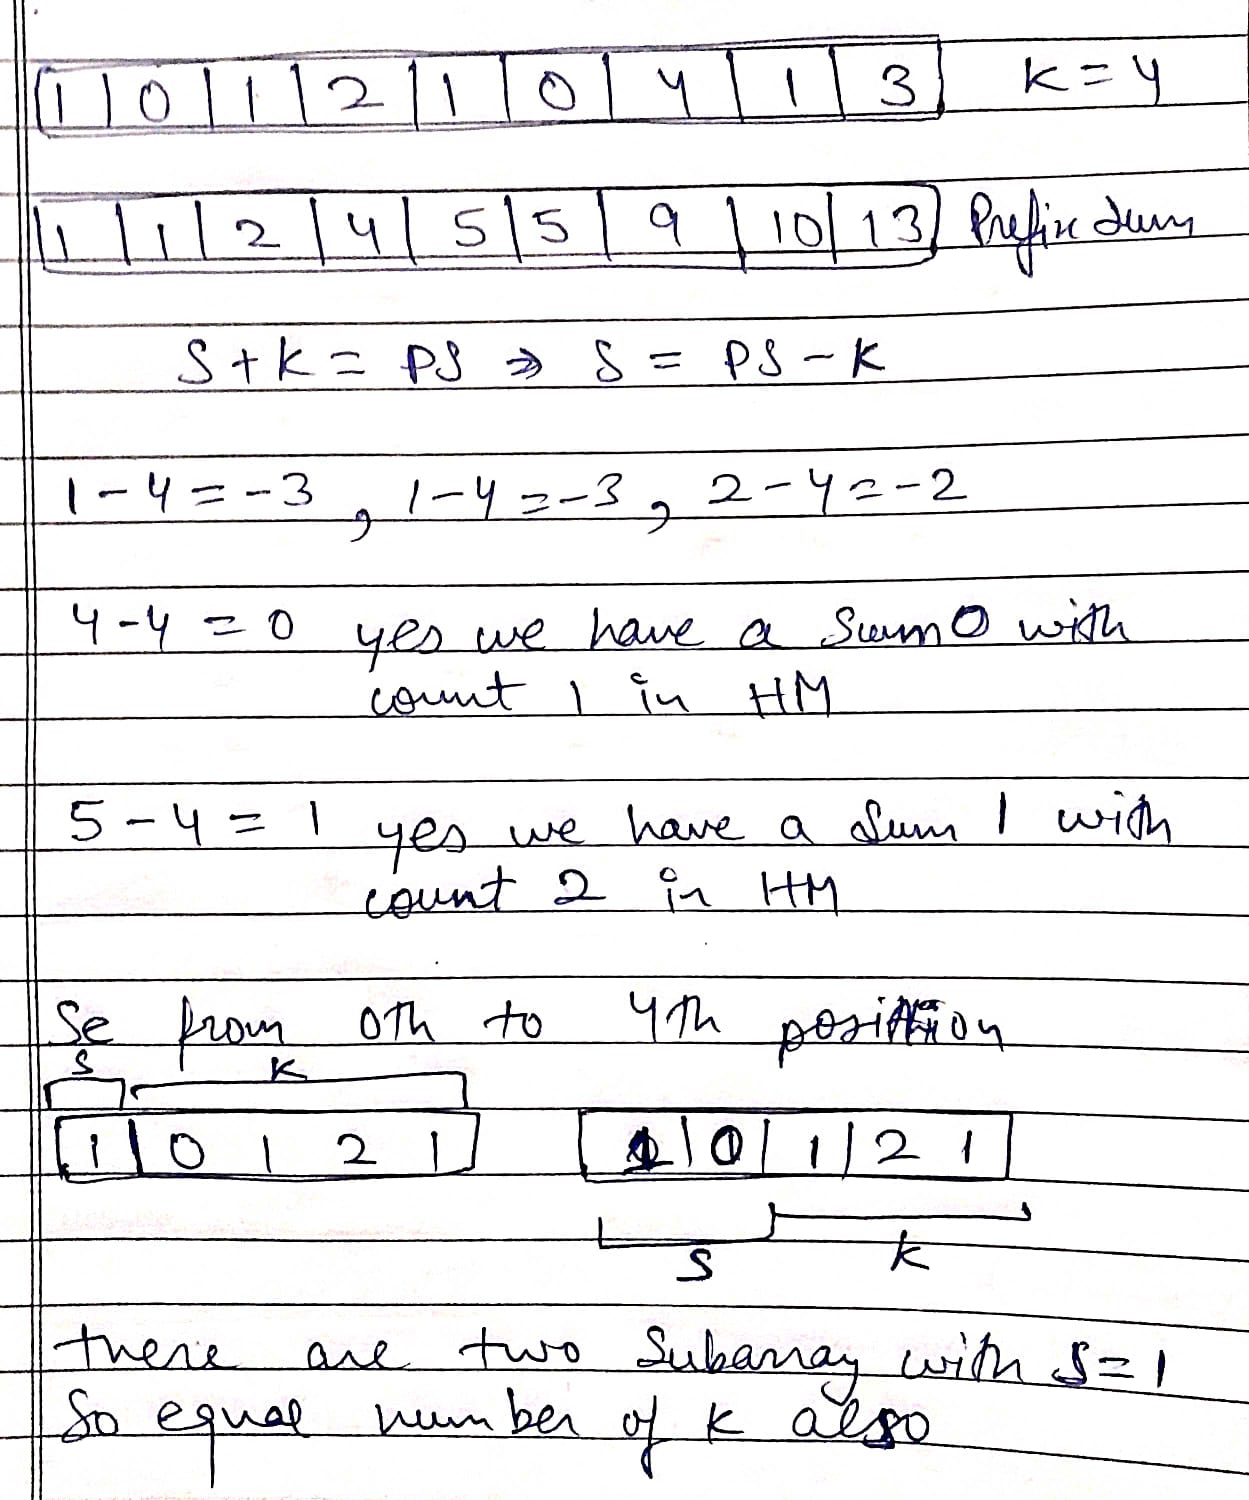 1 | 0 | 1 | 2 | 1 | 0 | 4 | 1 | 3 K = 4
1 | 1 | 2 | 4 | 5 | 5 | 9 | 10 | 13 Prefix Sum
S + K = PS ⇒ S = PS - K
1 - 4 = -3 , 1 - 4 = -3 , 2 - 4 = -2
4 - 4 = 0 yes we have a Sum 0 with
count 1 in HM
5 - 4 = 1 yes we have a Sum 1 with
count 2 in HM
Se from 0th to 4th position
S K
1 | 0 1 2 1 1 | 0 | 1 | 2 1
S K
there are two Subarray with S = 1
So equal number of K also